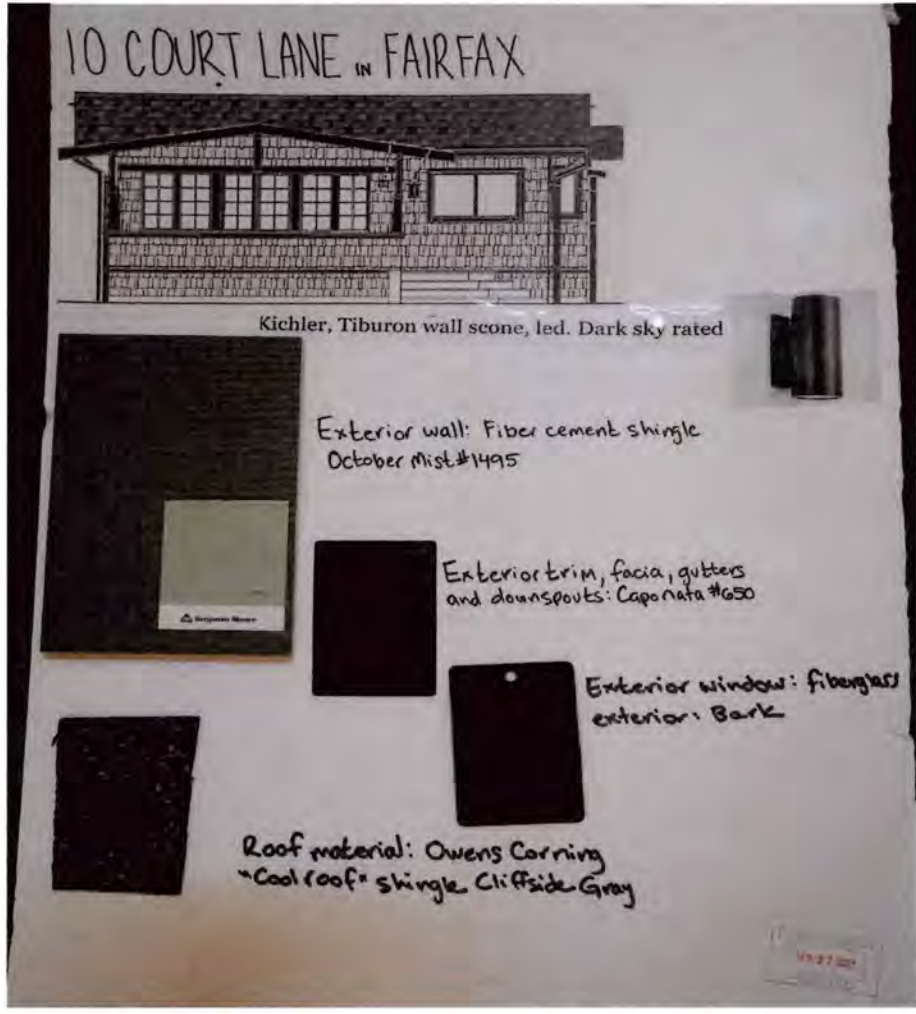 10 COURT LANE IN FAIRFAX
Kichler, Tiburon wall scone, led. Dark sky rated
Exterior wall: Fiber cement shingle
October Mist #1495
Benjamin Moore
Exterior trim, facia, gutters
and downspouts: Caponata #650
Exterior window: fiberglass
exterior: Bark
Roof material: Owens Corning
"Cool roof" shingle Cliffside Gray